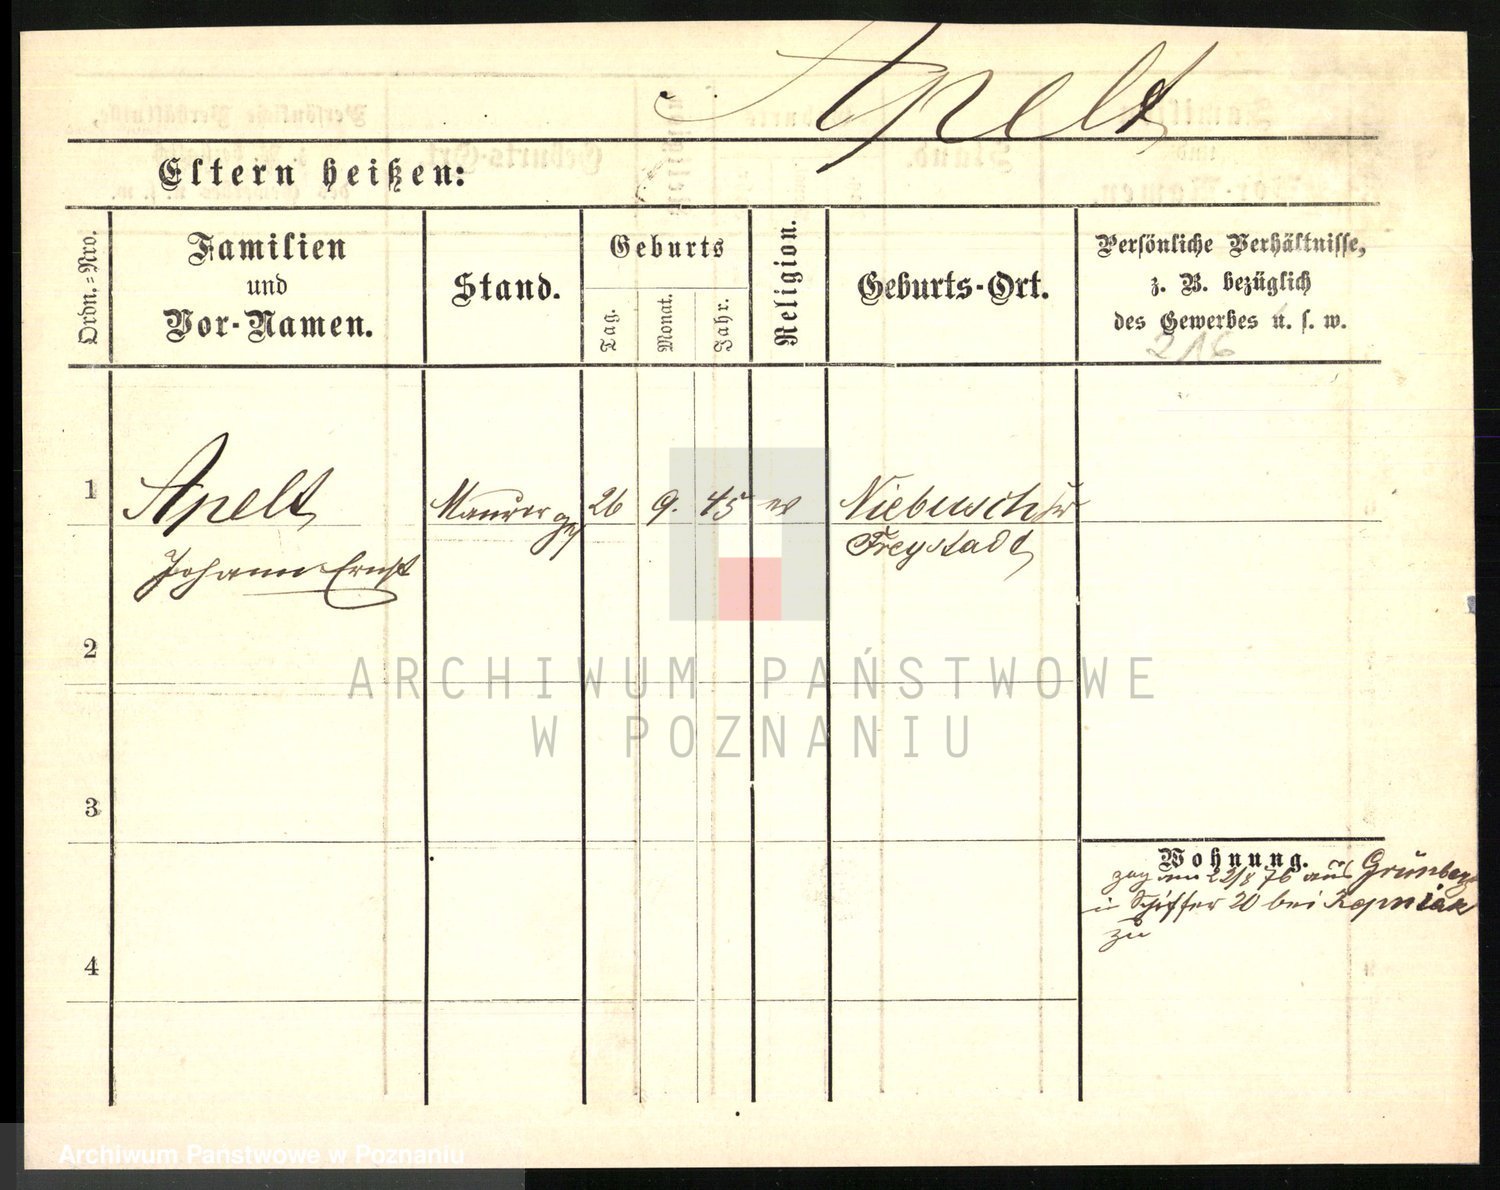 Apelt
Eltern heißen:
Ordn.-Nro.
Familien
und
Vor-Namen.
Stand.
Geburts
Tag.
Monat.
Jahr.
Religion.
Geburts-Ort.
Persönliche Verhältnisse,
z. B. bezüglich
des Gewerbes u. s. w.
216
1
Apelt
Johann Ernst
Maurer ges
26
9.
45
ev
Niebusch
Freystadt
2
3
4
Wohnung.
zog am 22/8 76 aus Grünberg
in Schiffer 20 bei
zu
ARCHIWUM PAŃSTWOWE
W POZNANIU
Archiwum Państwowe w Poznaniu